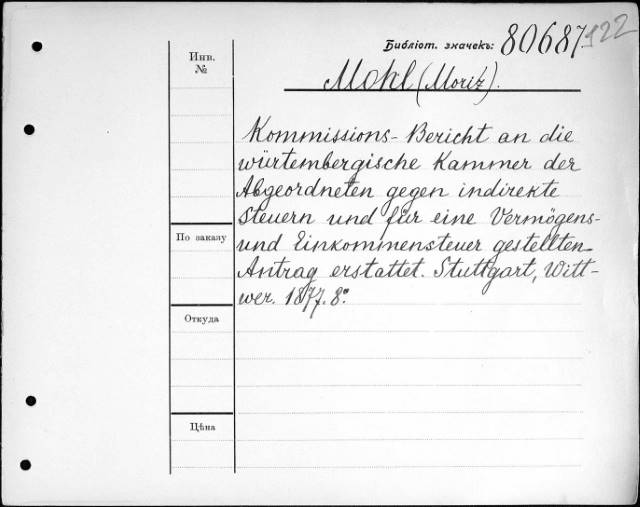 Библіот. значекъ: 80687 922
Инв.
№
Mohl (Moriz).
Kommissions-Bericht an die
würtembergische Kammer der
Abgeordneten gegen indirekte
Steuern und für eine Vermögens-
und Einkommensteuer gestellten
Antrag erstattet. Stuttgart, Witt-
wer. 1877. 8°.
По заказу
Откуда
Цѣна